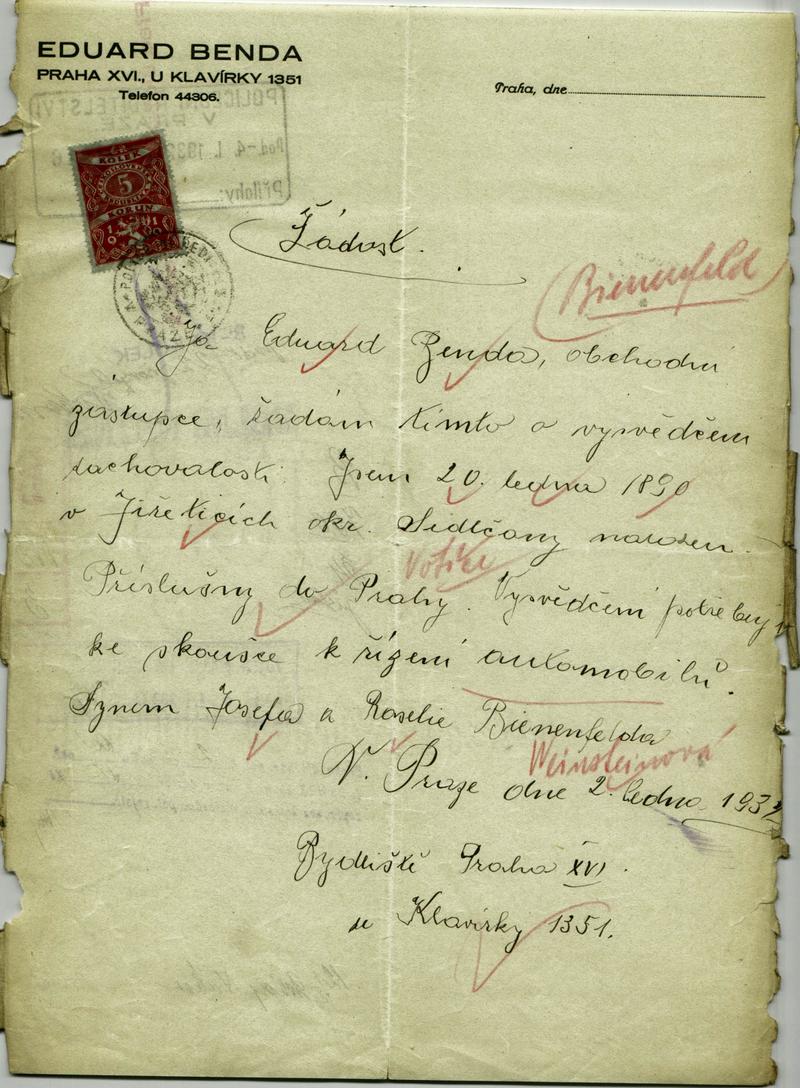 EDUARD BENDA
PRAHA XVI., U KLAVÍRKY 1351
Telefon 44306.
Praha, dne
KOLEK
5
KORUN
Žádost.
Bienenfeld
Já Eduard Benda, obchodní
zástupce, žádám tímto o vysvědčení
zachovalosti. Jsem 20. ledna 1890
v Jiřeticích okr. Sedlčany narozen.
Votice
Příslušný do Prahy. Vysvědčení potřebuji
ke zkoušce k řízení automobilů.
Synem Josefa a Roselie Bienenfelda
Weinsteinová
V. Praze dne 2. ledna 1932
Bydliště Praha XVI.
u Klavírky 1351.